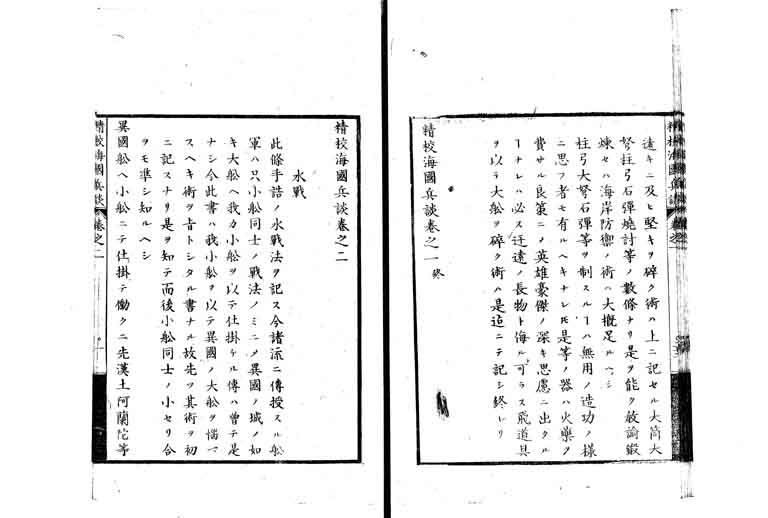 遠キニ及ヒ堅キヲ碎ク術ハ上ニ記セル大筒大
弩柱弓石彈燒討等ノ數條ナリ是ヲ能ク敎諭鍛
煉セハ海岸防禦ノ術ハ大概足ルヘシ
柱弓大弩石彈等ヲ制スルヿハ無用ノ造功ノ樣
ニ思フ者モ有ルヘキナレ𪜈是等ノ器ハ火藥ヲ
費サル良策ニ〆英雄豪傑ノ深キ思慮ニ出クル
ヿナレハ必ス迂遠ノ長物ト侮ル可ラス飛道具
ヲ以テ大舩ヲ碎ク術ハ是迠ニテ記シ終レリ
精校海國兵談卷之一終
精校海國兵談卷之二
水戰
此條手詰ノ水戰法ヲ記ス今諸流ニ傳授スル舩
軍ハ只小舩同士ノ戰法ノミニ〆異國ノ城ノ如
キ大舩ヘ我カ小舩ヲ以テ仕掛ケル傳ハ曾テ是
ナシ今此書ハ我小舩ヲ以テ異國ノ大舩ヲ惱マ
スヘキ術ヲ旨トシタル書ナル故先ツ其術ヲ初
ニ記スナリ是ヲ知テ而後小舩同士ノ小セリ合
ヲモ準シ知ルヘシ
異國舩ヘ小舩ニテ仕掛テ働クニ先漢土阿蘭陀等
精校海國兵談
卷之二